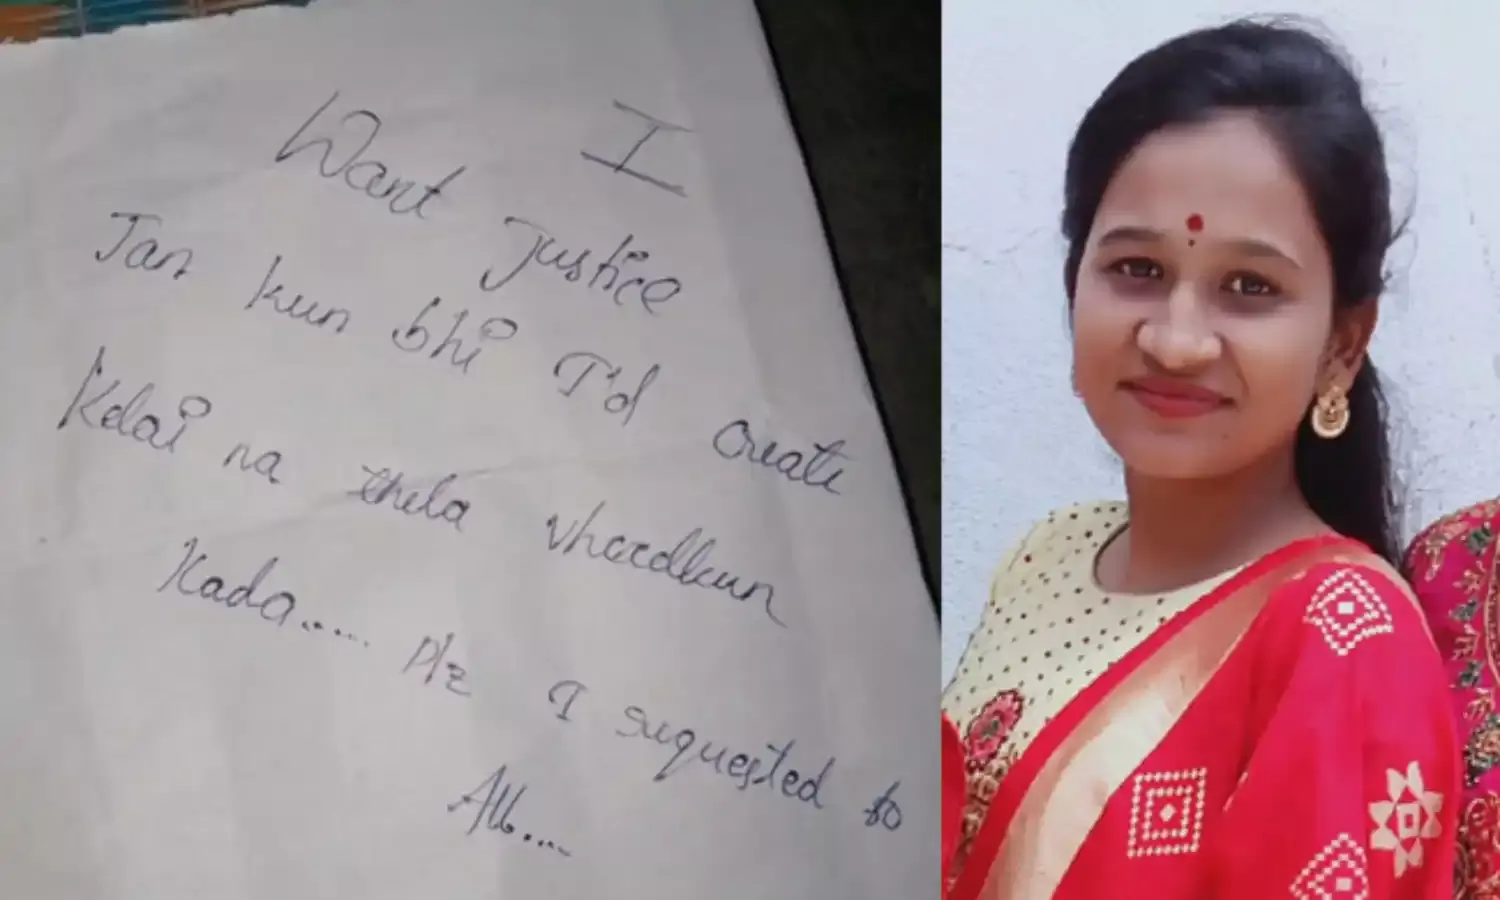 I
Want justice
Jan kun bhi I'd create
Kelai na thela vhoedkun
Kada..... Plz I suquested to
All....